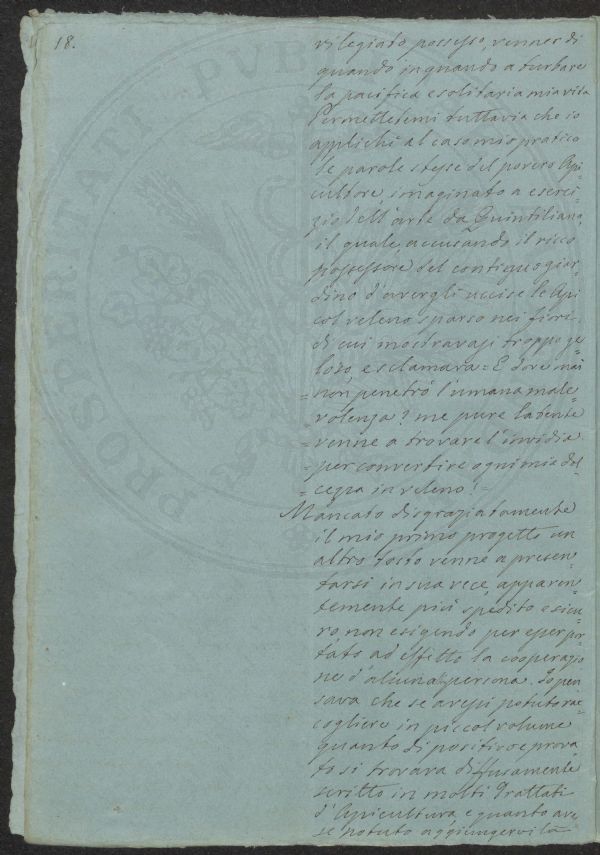 18.
vilegiato possesso, venner di
quando in quando a turbare
la pacifica e solitaria mia vita
Permettetemi tuttavia che io
applichi al caso mio pratico
le parole stesse del povero Api=
cultore, immaginato a eserci=
zio dell'arte da Quintiliano,
il quale, accusando il ricco
possessore del contiguo giar=
dino d'avergli uccise le Api
col veleno sparso nei fiori,
di cui mostravasi troppo ge=
loso, esclamava = E dove mai
= non penetrò l'umana male=
= volenza? me pure latente
= venne a trovare l'invidia
= per convertire ogni mia dol=
= cezza in veleno! =
Mancato disgraziatamente
il mio primo progetto un
altro tosto venne a presen=
tarsi in sua vece, apparen=
temente più spedito e sicu=
ro, non esigendo per esser por=
tato ad effetto la cooperazio
ne d'alcuna persona. Io pen
sava che se avessi potuto rac=
cogliere in piccol volume
quanto di positivo e prova
to si trovava diffusamente
scritto in molti Trattati
d'Apicultura, e quanto aves
se potuto aggiungervi la
PROSPERITATI PUB